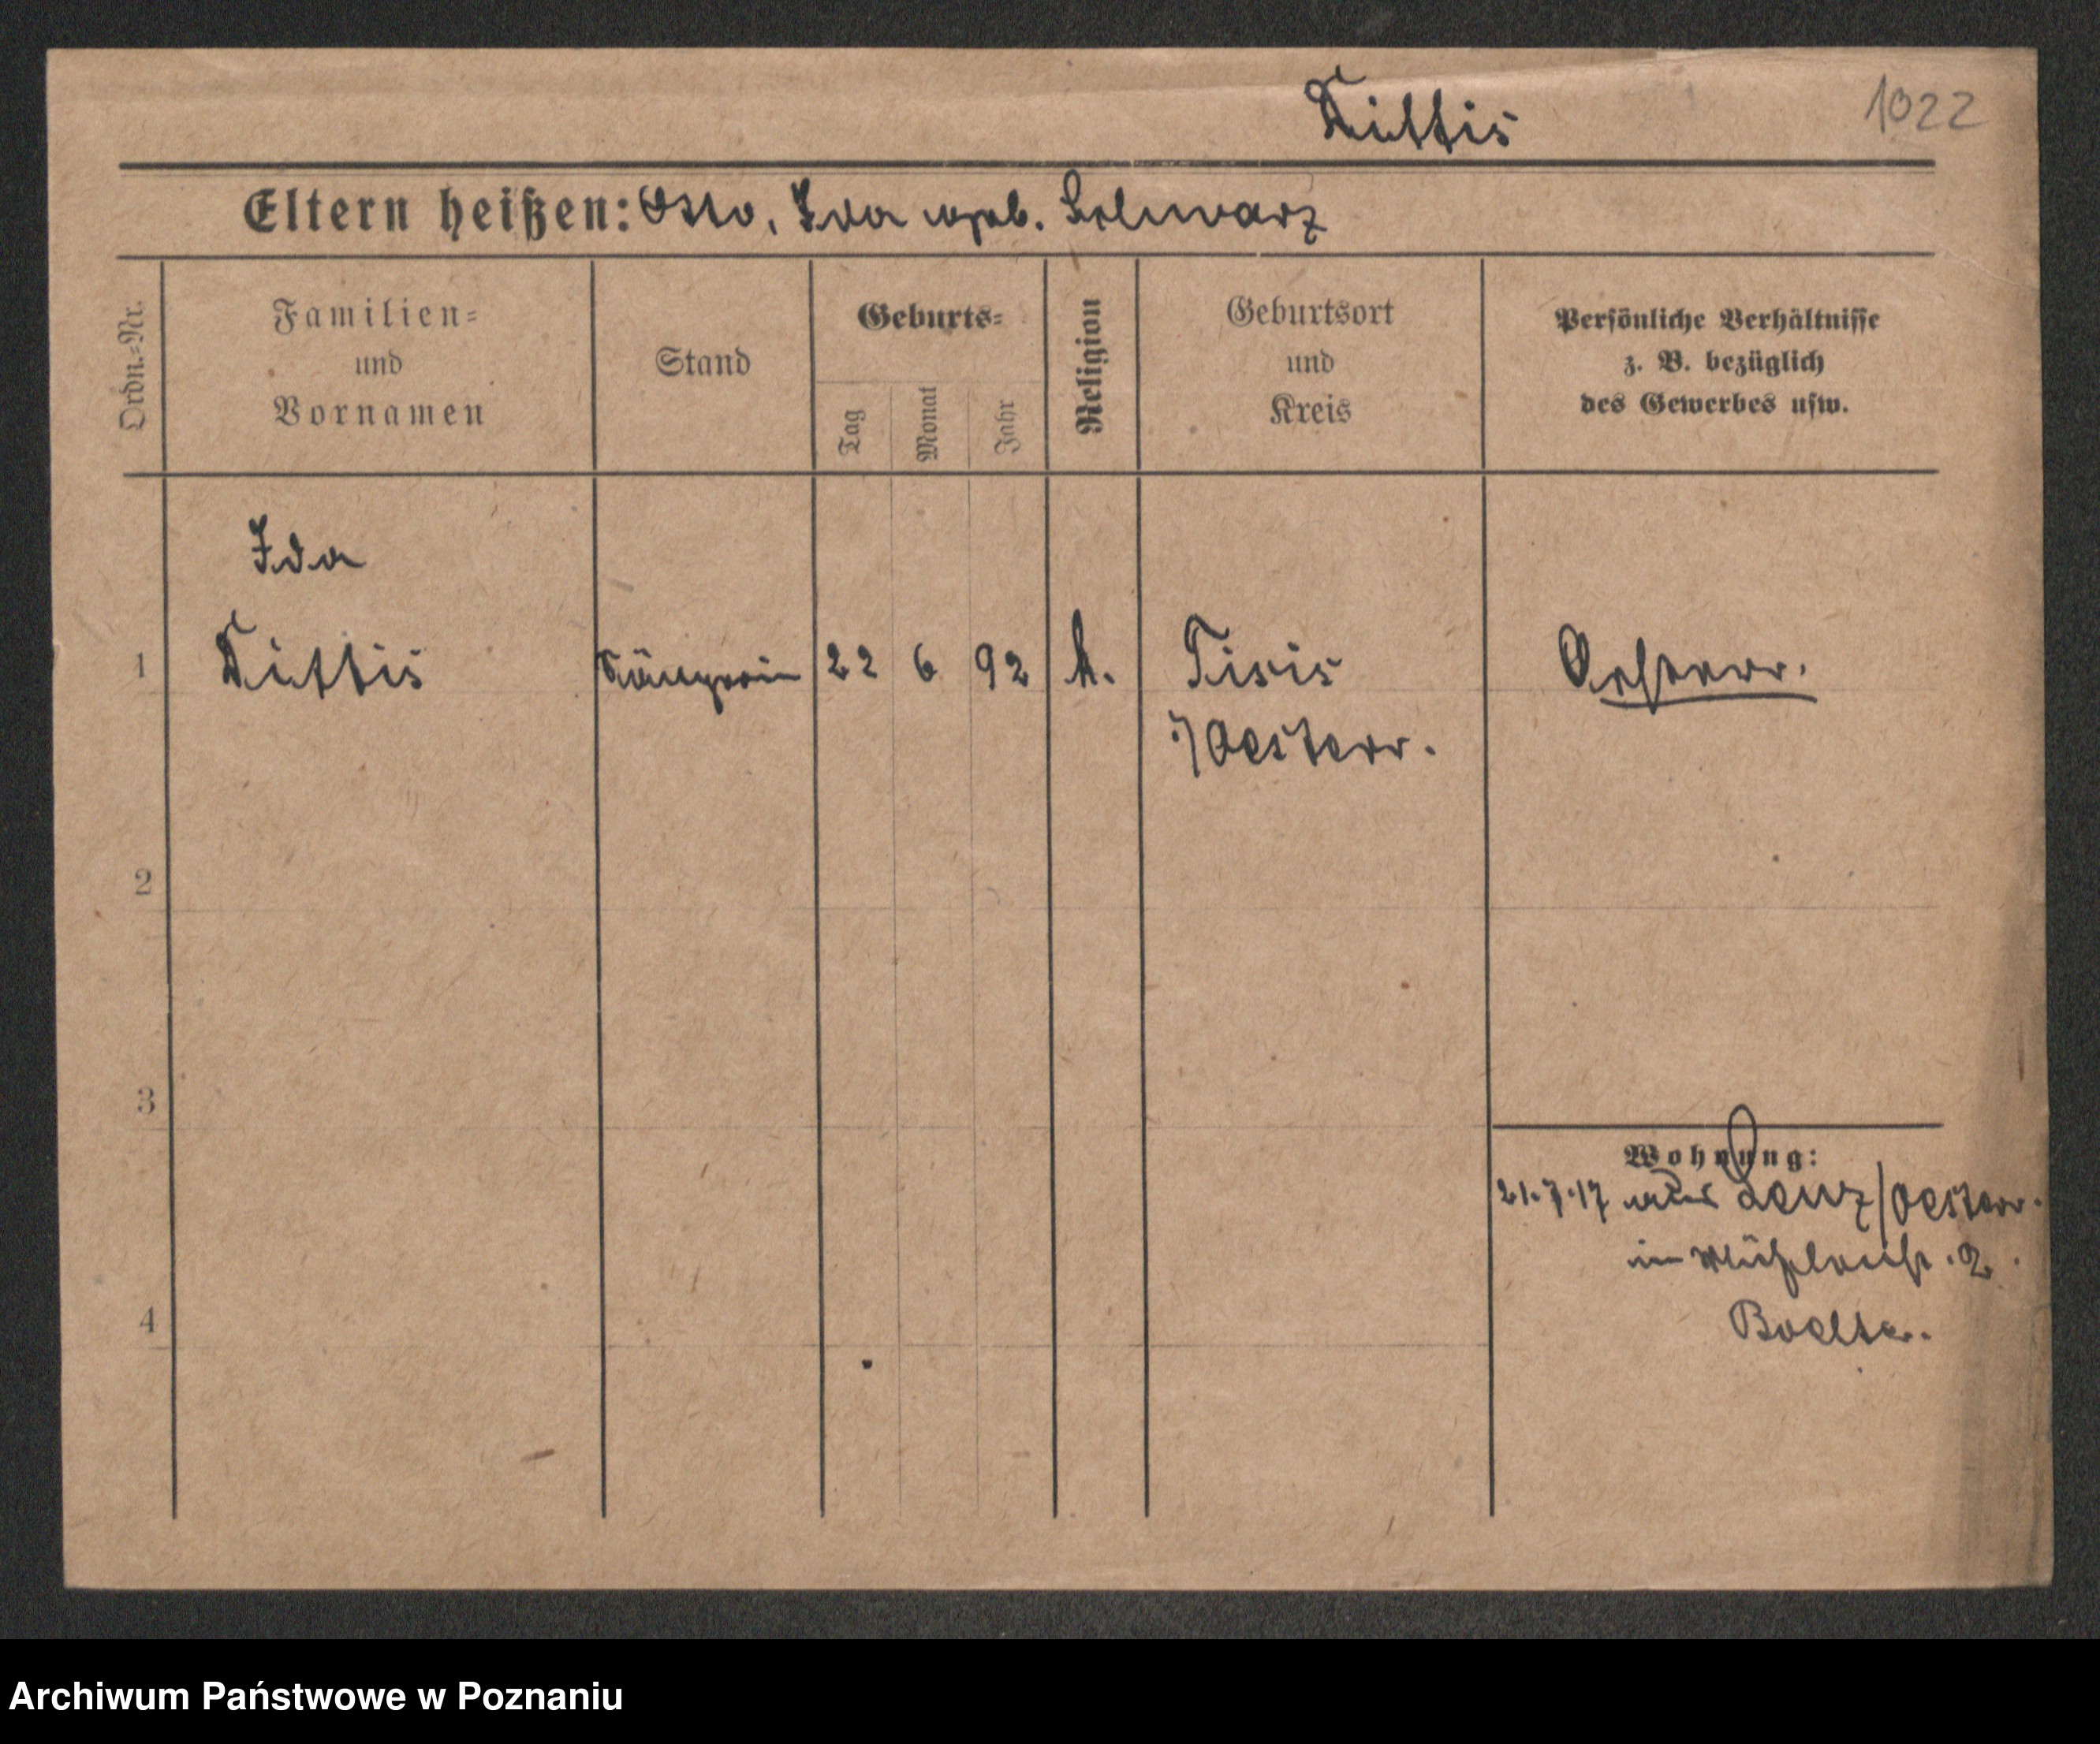 1022
Eltern heißen: Otto, Ida geb. Schwarz
Ordn.-Nr.
Familien-
und
Vornamen
Stand
Geburts-
Tag
Monat
Jahr
Religion
Geburtsort
und
Kreis
Persönliche Verhältnisse
z. B. bezüglich
des Gewerbes usw.
Ida
1 Sängerin 22 6 92 k. Tisis Oesterr.
i/Oesterr.
2
3
Wohnung:
21.7.17 aus /Oesterr.
in Mühlenstr. 2.
4
Archiwum Państwowe w Poznaniu